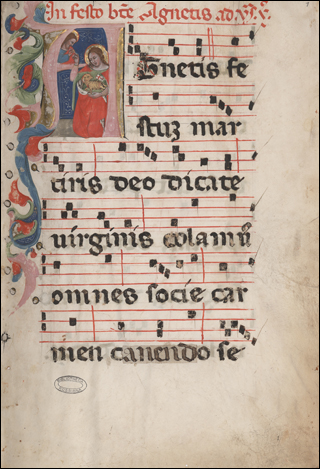 In festo bt̄e Agnetis ad
Agnetis fe
stuz mar
tiris deo dicate
uirginis colamꝰ
omnes socie car
men canendo se